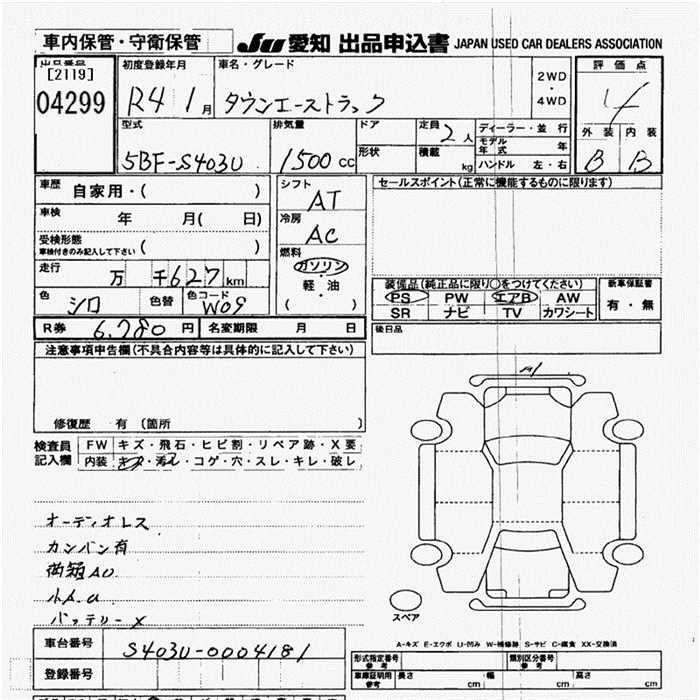 車内保管・守衛保管 JU 愛知 出品申込書 JAPAN USED CAR DEALERS ASSOCIATION
出品番号 初度登録年月 車名・グレード 2WD・4WD 評価点
[2119]
04299 R4 1月 タウンエーストラック 4
型式 排気量 ドア 定員 2人 ディーラー・並行 外装 内装
モデル年式 年
5BF-S403U 1500cc 形状 積載 kg ハンドル 左・右 B B
車歴 自家用・( ) シフト AT セールスポイント(正常に機能するものに限ります)
車検 年 月( 日) 冷房 AC
受検形態 車検付きのみ記入して下さい ( )
燃料 ガソリン・軽油・( )
走行 万 千627km
装備品(純正品に限り○をつけてください) 新車保証書
色 シロ 色替 色コード W09 PS PW エアB AW 有・無
SR ナビ TV カワシート
R券 6,780円 名変期限 月 日 後日品
注意事項申告欄(不具合内容等は具体的に記入して下さい)
A1
修復歴 有 (箇所 )
検査員記入欄 FW キズ・飛石・ヒビ割・リペア跡・X要
内装 キズ・汚レ・コゲ・穴・スレ・キレ・破レ
オーディオレス
カンバン有
荷箱AU
小A.U
バッテリーX
スペア
車台番号 S403U-0004181
A-キズ E-エクボ U-凹み W-補修跡 S-サビ C-腐食 XX-交換済
登録番号 形式指定番号 参考 類別区分番号 参考
車庫証明用 参考 長さ cm 幅 cm 高さ cm